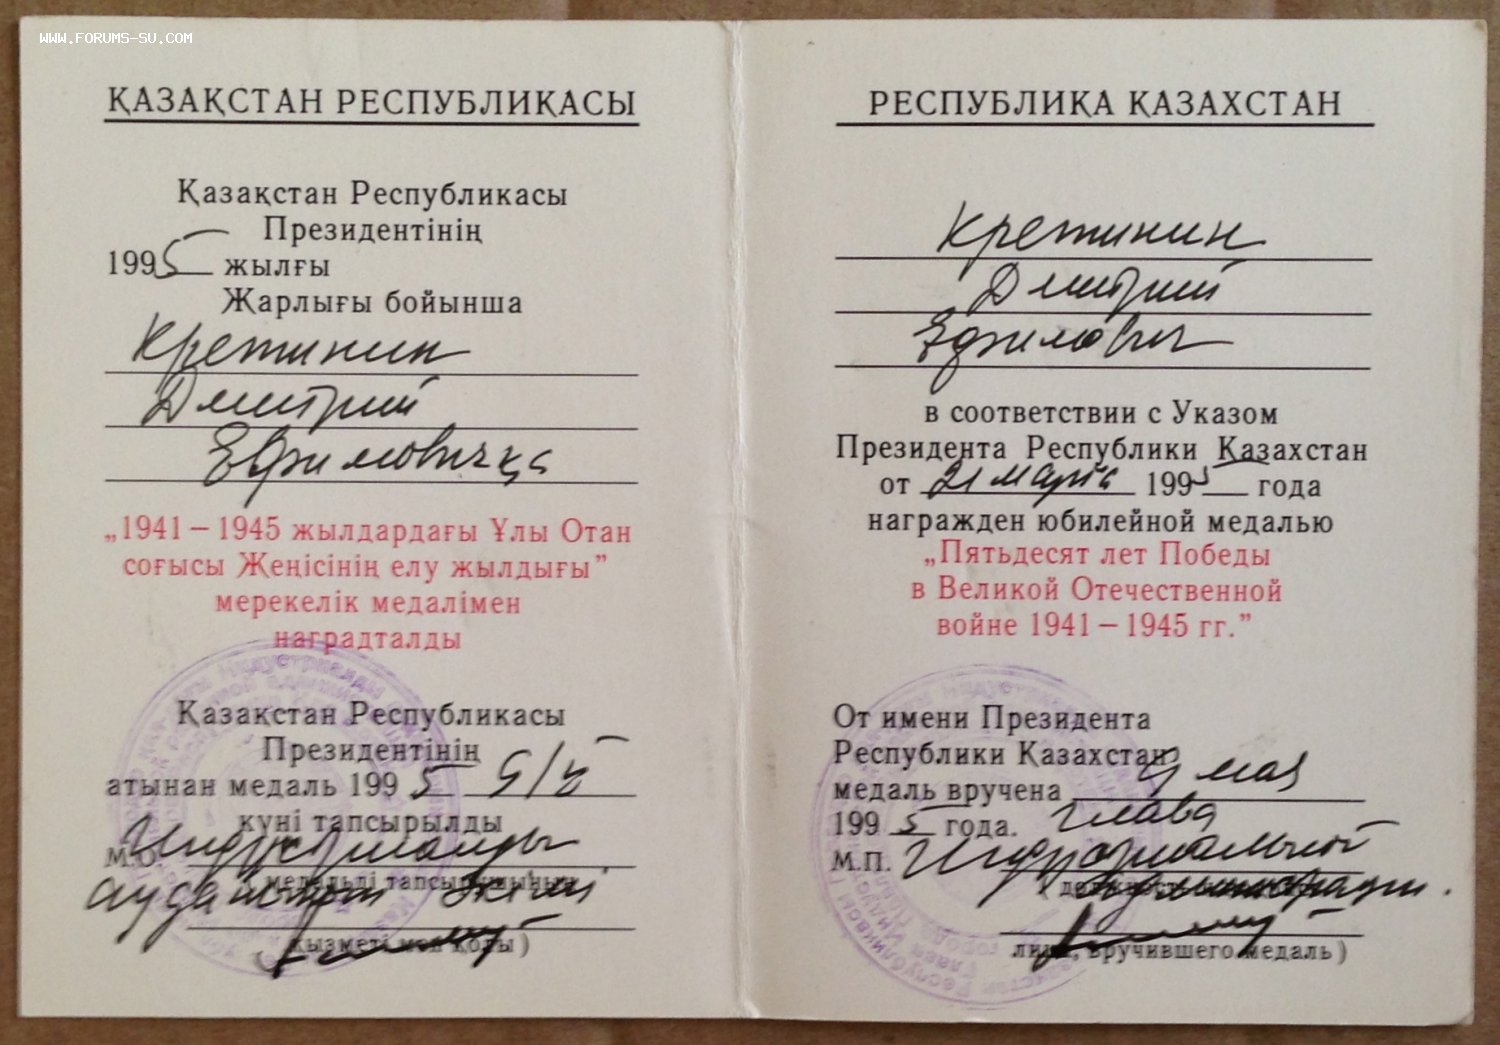 WWW.FORUMS-SU.COM
ҚАЗАҚСТАН РЕСПУБЛИҚАСЫ
Қазақстан Республикасы
Президентінің
1995 жылғы
Жарлығы бойынша
Кретинин
Дмитрий
Ефимовичқа
„1941 – 1945 жылдардағы Ұлы Отан
соғысы Жеңісінің елу жылдығы”
мерекелік медалімен
наградталды
Қазақстан Республикасы
Президентінің
атынан медаль 1995 9/V
күні тапсырылды
М.О. Индустриалды
ауданның әкімі
медальді тапсырушының
қызметі мен қолы)
РЕСПУБЛИҚА ҚАЗАХСТАН
Кретинин
Дмитрий
Ефимович
в соответствии с Указом
Президента Республики Казахстан
от 21 марта 1995 года
награжден юбилейной медалью
„Пятьдесят лет Победы
в Великой Отечественной
войне 1941 – 1945 гг.”
От имени Президента
Республики Казахстан
медаль вручена 9 мая
1995 года. Глава
М.П. Индустриальной
администрации.
лица, вручившего медаль)